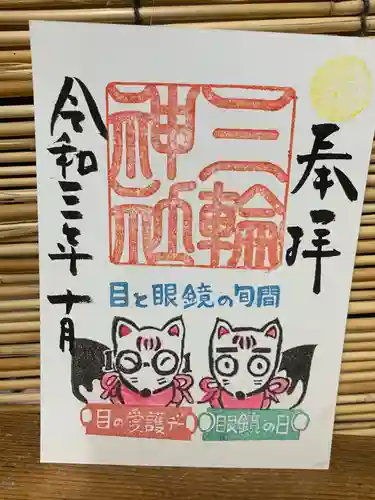 奉拝
三輪
神社
令和三年 十月
目と眼鏡の旬間
101
目の愛護デー
眼鏡の日